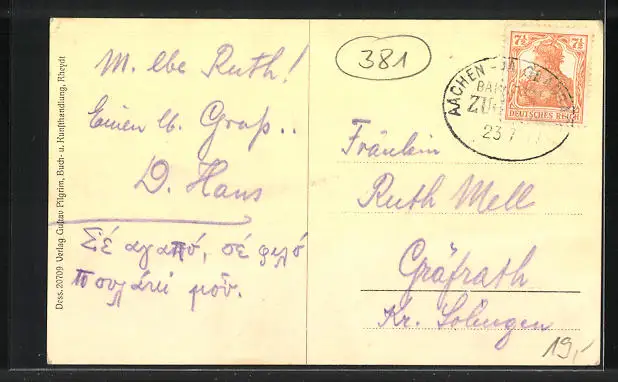 M. lbe Ruth!
Einen lb. Gruß..
D. Hans
Σέ αγαπό, σέ φιλό
πουλάκι μοῦ.
Dess. 20709 Verlag Gustav Pilgrim, Buch- u. Kunsthandlung, Rheydt
381
AACHEN
BAHNPOST
ZUG
23 7
7½ 7½
DEUTSCHES REICH
Fräulein
Ruth Mell
Gräfrath
Kr. Solingen
19,-